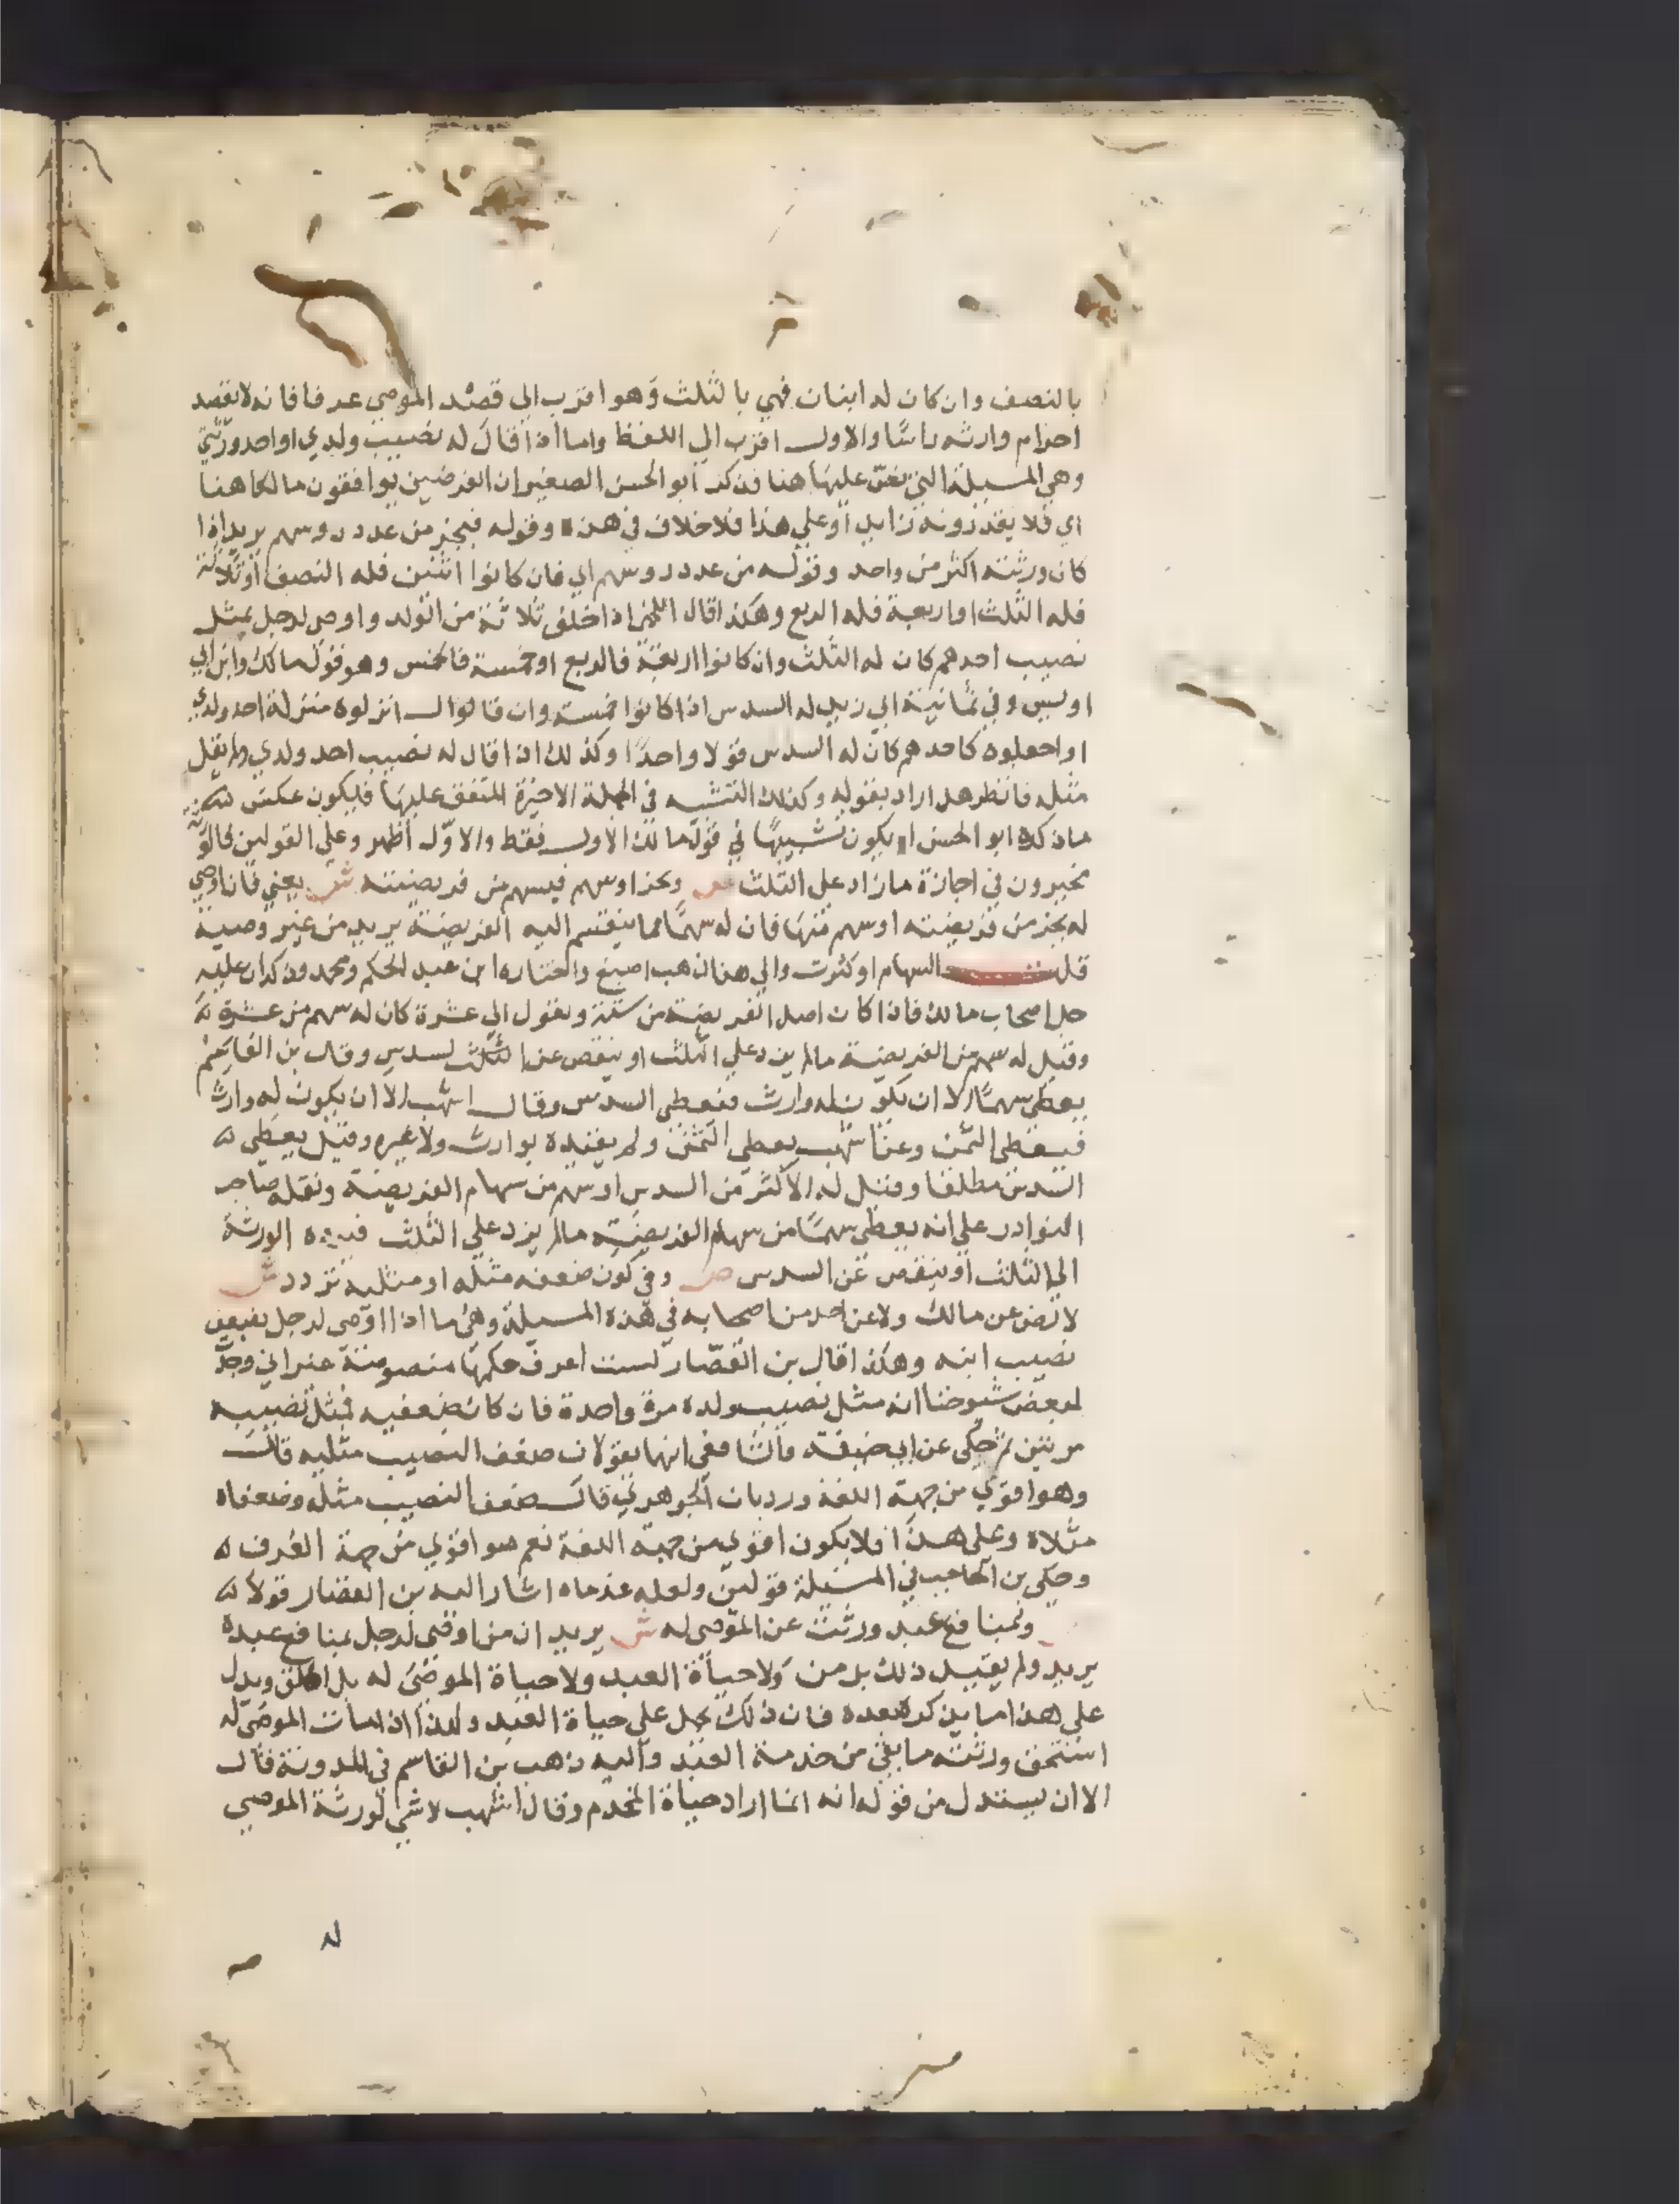 بالنصف وان كان له ابنان فهي بالثلث وهو اقرب الي قصد الموصي عرفا فانه لا يقصد
احرام وارثه راسا والاول اقرب الي اللفظ واما اذا قال له نصيب ولدي او احد ورثتي
وهي المسيلة التي نص عليها هنا فذكر ابو الحسن الصغير ان الفرضيين يوافقون مالكا هنا
اي فلا يقدرونه زايد او علي هذا فلا خلاف في هذه وقوله فبجز من عدد روسهم يريد اذا
كان ورثته اكثر من واحد وقوله من عدد روسهم اي فان كانوا اثنين فله النصف او ثلاثة
فله الثلث او اربعة فله الربع وهكذا قال اللخمي اذا خلف ثلاثة من الولد واوصي لرجل بمثل
نصيب احدهم كان له الثلث وان كانوا اربعة فالربع او خمسة فالخمس وهو قول مالك وابن ابي
اويس وفي ثمانية ابي زيد له السدس اذا كانوا خمسة وان قالوا لـ انزلوه منزلة احد ولدي
او اجعلوه كاحدهم كان له السدس قولا واحدا وكذلك اذا قال له نصيب احد ولدي ولم يقل
مثله فانظر هل اراد بقوله وكذلك التشبيه في الجملة الاخيرة المتفق عليها فليكون عكس
ماذكره ابو الحسن او يكون تشبيها في قول مالك الاول فقط والاول اظهر وعلي القولين فالورثة
مخيرون في اجازة ما زاد علي الثلث ص وبجز اوسهم فبسهم من فريضته ش يعني فان اوصي
له بجز من فريضته او سهم منها فان له سهما مما ينقسم اليه الفريضة يريد من غير وصية
قلت السهام او كثرت والي هذا ذهب اصبغ واختاره ابن عبد الحكم ومحمد وذكر ان عليه
جل اصحاب مالك فاذا كان اصل الفريضة من ستة وبعول الي عشرة كان له سهم من عشرة
وقيل له سهم من الفريضة مالم يزد علي الثلث او ينقص عن السدس وقال بن القاسم
يعطي سهما الا ان يكون له وارث فيعطي السدس وقال اشهب الا ان يكون له وارث
فيعطي الثمن وعن اشهب يعطي الثمن ولم يقيده بوارث ولا غيره وقيل يعطي
السدس مطلقا وقيل له الاكثر من السدس او سهم من سهام الفريضة ونقله صاحب
النوادر علي انه يعطي سهما من سهام الفريضة مالم يزد علي الثلث فيرده الورثة
الي الثلث او ينقص عن السدس ص وفي كون ضعفه مثله او مثليه تردد ش
لا نص عن مالك ولا عن احد من اصحابه في هذه المسيلة وهي ما اذا اوصي لرجل بضعف
نصيب ابنه وهكذا قال بن القصار لست اعرف حكمها منصوصة غير اني وجدت
لبعض شيوخنا انه مثل نصيب ولده مرة واحدة فان كان ضعفيه فمثل نصيبه
مرتين ثم حكي عن ابي حنيفة والشافعي انهما يقولان ضعف النصيب مثليه قال
وهو اقوي من جهة اللغة ورد بان الجوهري قال ضعف النصيب مثله وضعفاه
مثلاه وعلي هذا فلا يكون اقوي من جهة اللغة نعم هو اقوي من جهة العرف
وحكي بن الحاجب في المسيلة قولين ولعله عد ما اشار اليه بن القصار قولا
وبمنافع عبد ورثت عن الموصي له ش يريد ان من اوصي لرجل بمنافع عبده
يريد ولم يقيد ذلك بزمن ولا حياة العبد ولا حياة الموصي له بل اطلق ويدل
علي هذا ما يذكره بعده فان ذلك يحمل علي حياة العبد ولهذا اذا مات الموصي له
استحق ورثته ما بقي من خدمة العبد واليه ذهب بن القاسم في المدونة قال
الا ان يستدل من قوله انه انما اراد حياة المخدم وقال اشهب لا شي لورثة الموصي
له